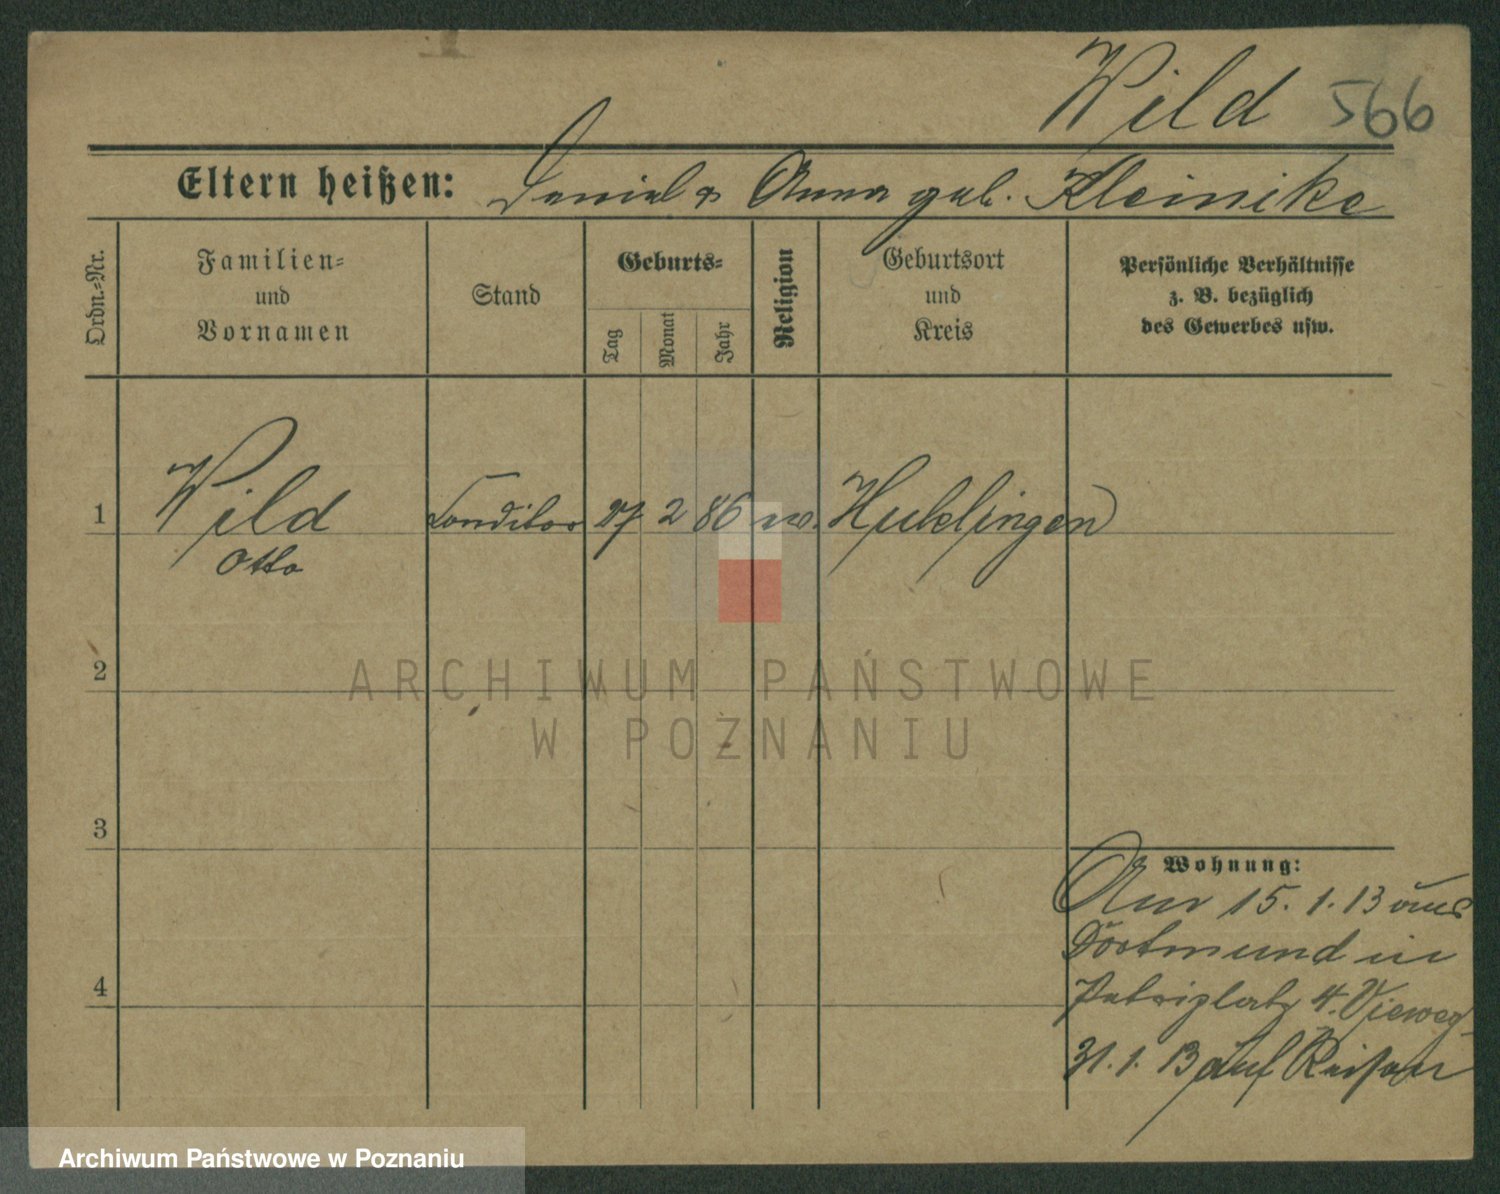 Wild 566
Eltern heißen: Daniel & Anna geb. Kleinike
Ordn.-Nr.
Familien-
und
Vornamen
Stand
Geburts-
Tag
Monat
Jahr
Religion
Geburtsort
und
Kreis
Persönliche Verhältnisse
z. B. bezüglich
des Gewerbes usw.
1 Wild Conditor 27 2 86 ev.
Otto
2
ARCHIWUM PAŃSTWOWE
W POZNANIU
3
Wohnung:
15. 1. 13 aus
Dortmund in
4
Petriplatz 4. Vieweg
31. 1. 13 auf Reisen
Archiwum Państwowe w Poznaniu